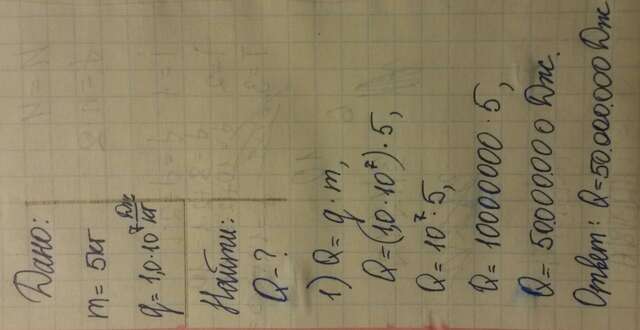 Дано:
m = 5кг
q = 1,0·10⁷ Дж/кг
Найти:
Q - ?
1) Q = q · m,
Q = (1,0·10⁷)·5,
Q = 10⁷·5,
Q = 10000000·5,
Q = 50.000.000 Дж.
Ответ: Q = 50.000.000 Дж